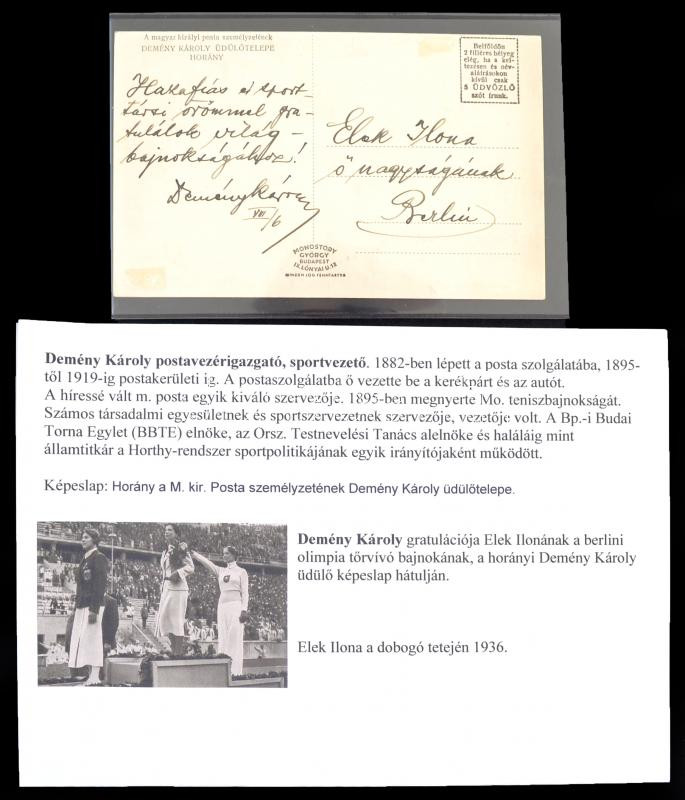 A magyar királyi posta személyzetének
DEMÉNY KÁROLY ÜDÜLŐTELEPE
HORÁNY
Hazafias és sport-
társi örömmel gra-
tulálok világ-
bajnokságához!
Demény Károly
VIII/6
Belföldön
2 filléres bélyeg
elég, ha a kel-
tezésen és név-
aláirásokon
kivül csak
5 ÜDVÖZLŐ
szót irunk.
Elek Ilona
ő nagyságának
Berlin
MONDSTORY
GYÖRGY
BUDAPEST
IX. LÓNYAI U. 13
MINDEN JOG FENNTARTVA
Demény Károly postavezérigazgató, sportvezető. 1882-ben lépett a posta szolgálatába, 1895-
től 1919-ig postakerületi ig. A postaszolgálatba ő vezette be a kerékpárt és az autót.
A híressé vált m. posta egyik kiváló szervezője. 1895-ben megnyerte Mo. teniszbajnokságát.
Számos társadalmi egyesületnek és sportszervezetnek szervezője, vezetője volt. A Bp.-i Budai
Torna Egylet (BBTE) elnöke, az Orsz. Testnevelési Tanács alelnöke és haláláig mint
államtitkár a Horthy-rendszer sportpolitikájának egyik irányítójaként működött.
Képeslap: Horány a M. kir. Posta személyzetének Demény Károly üdülőtelepe.
Demény Károly gratulációja Elek Ilonának a berlini
olimpia tőrvívó bajnokának, a horányi Demény Károly
üdülő képeslap hátulján.
Elek Ilona a dobogó tetején 1936.